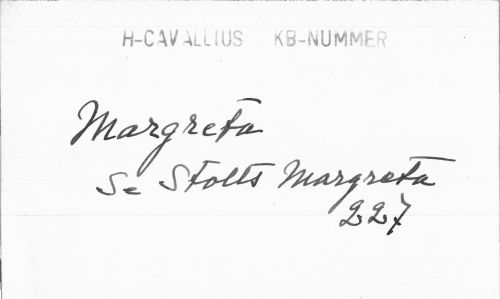 H-CAVALLIUS KB-NUMMER
Margreta
Se Stolts Margreta
227